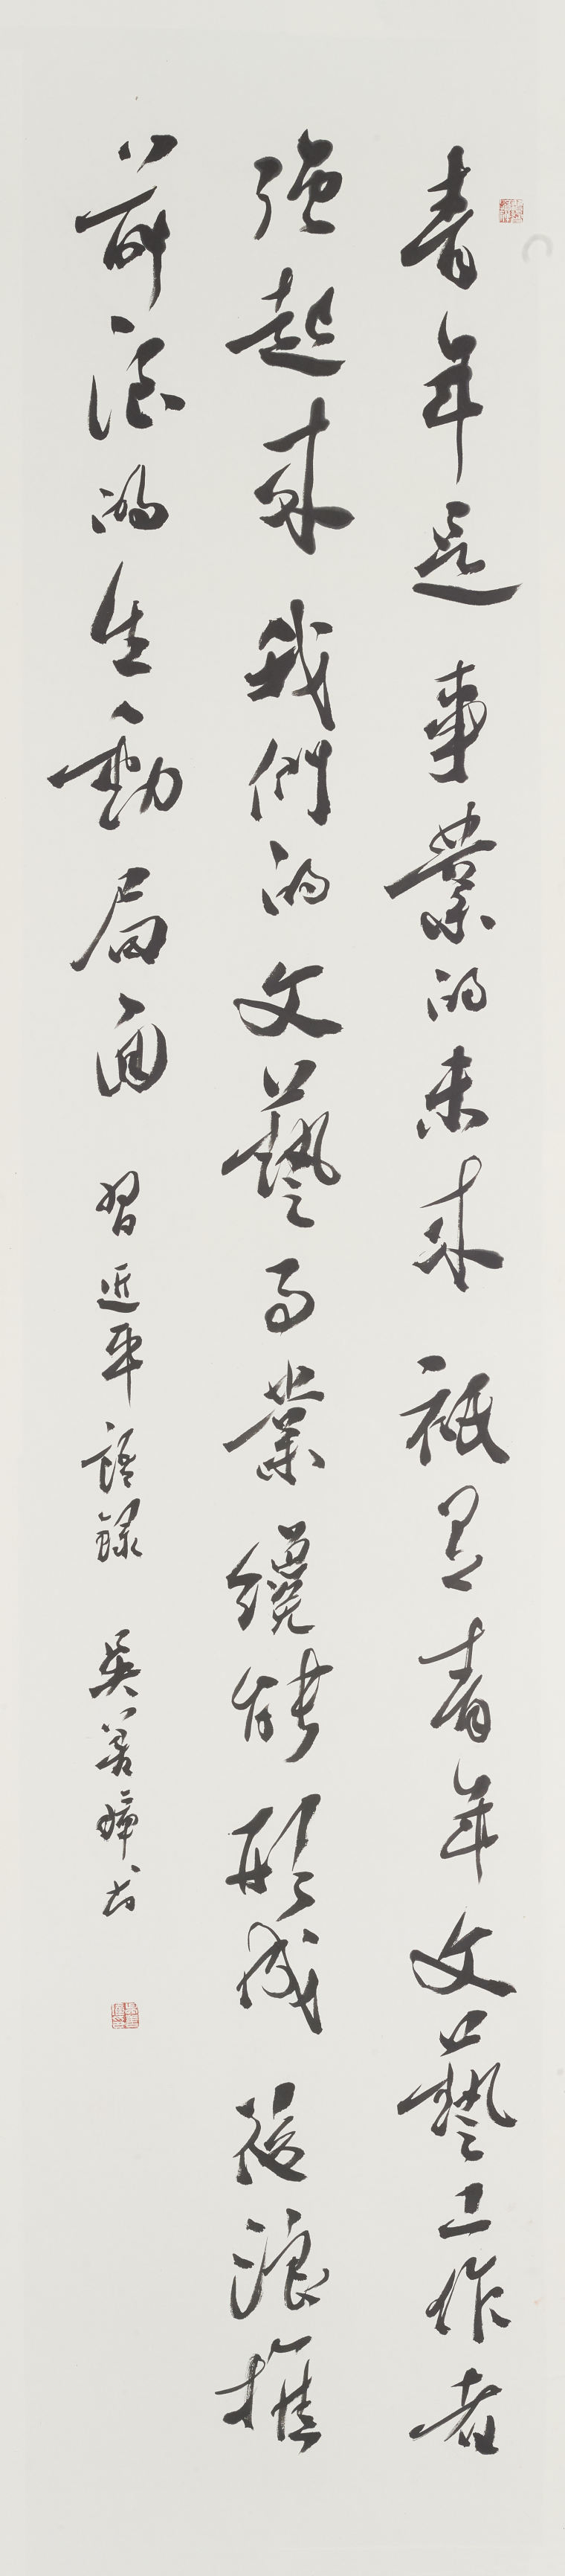 青年是事業的未來祇有青年文藝工作者
強起來我們的文藝事業纔能形成後浪推
前浪的生動局面 習近平語錄 吳善璋書